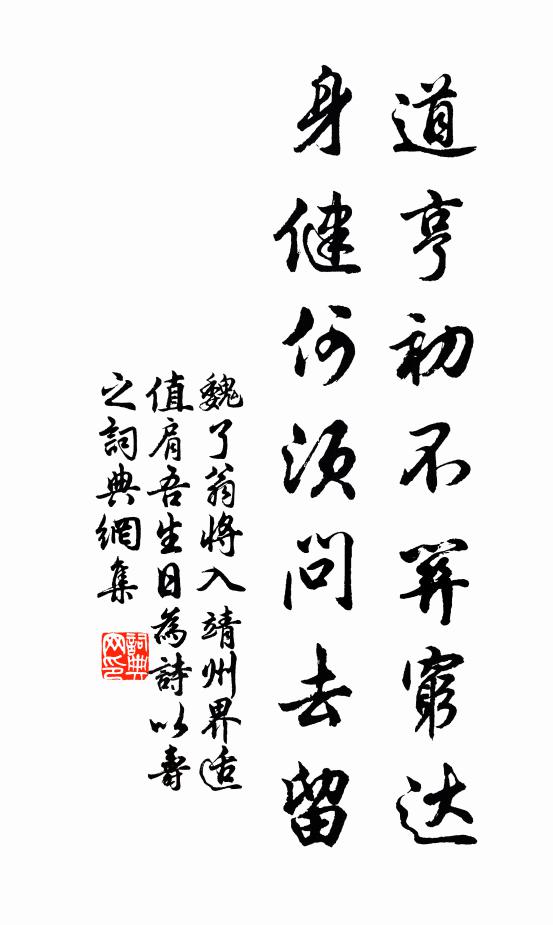 道亨初不算穷达
身健何须问去留
魏了翁将入靖州界适
值肩吾生日為詩以壽
之詞典網集
詞典网印